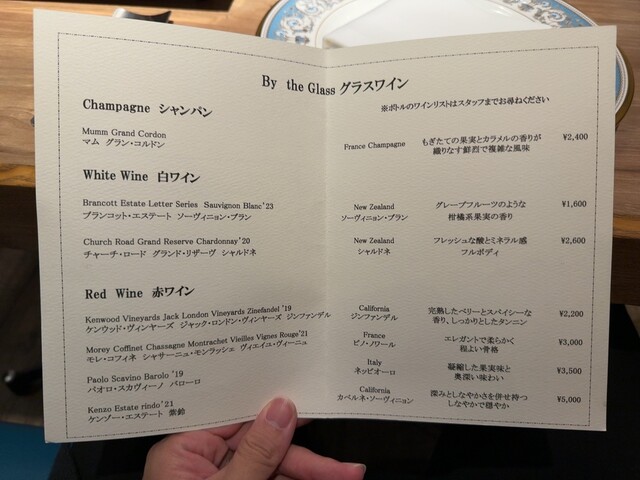 By the Glass グラスワイン
※ボトルのワインリストはスタッフまでお尋ねください
Champagne シャンパン
Mumm Grand Cordon
マム グラン・コルドン
France Champagne
もぎたての果実とカラメルの香りが
織りなす鮮烈で複雑な風味
¥2,400
White Wine 白ワイン
Brancott Estate Letter Series Sauvignon Blanc'23
ブランコット・エステート ソーヴィニョン・ブラン
New Zealand
ソーヴィニョン・ブラン
グレープフルーツのような
柑橘系果実の香り
¥1,600
Church Road Grand Reserve Chardonnay'20
チャーチ・ロード グランド・リザーヴ シャルドネ
New Zealand
シャルドネ
フレッシュな酸とミネラル感
フルボディ
¥2,600
Red Wine 赤ワイン
Kenwood Vineyards Jack London Vineyards Zinefandel '19
ケンウッド・ヴィンヤーズ ジャック・ロンドン・ヴィンヤーズ ジンファンデル
California
ジンファンデル
完熟したベリーとスパイシーな
香り、しっかりとしたタンニン
¥2,200
Morey Coffinet Chassagne Montrachet Vieilles Vignes Rouge'21
モレ・コフィネ シャサーニュ・モンラッシェ ヴィエイユ・ヴィーニュ
France
ピノ・ノワール
エレガントで柔らかく
程よい骨格
¥3,000
Paolo Scavino Barolo '19
パオロ・スカヴィーノ バローロ
Italy
ネッビオーロ
凝縮した果実味と
奥深い味わい
¥3,500
Kenzo Estate rindo'21
ケンゾー・エステート 紫鈴
California
カベルネ・ソーヴィニョン
深みとしなやかさを併せ持つ
しなやかで穏やか
¥5,000